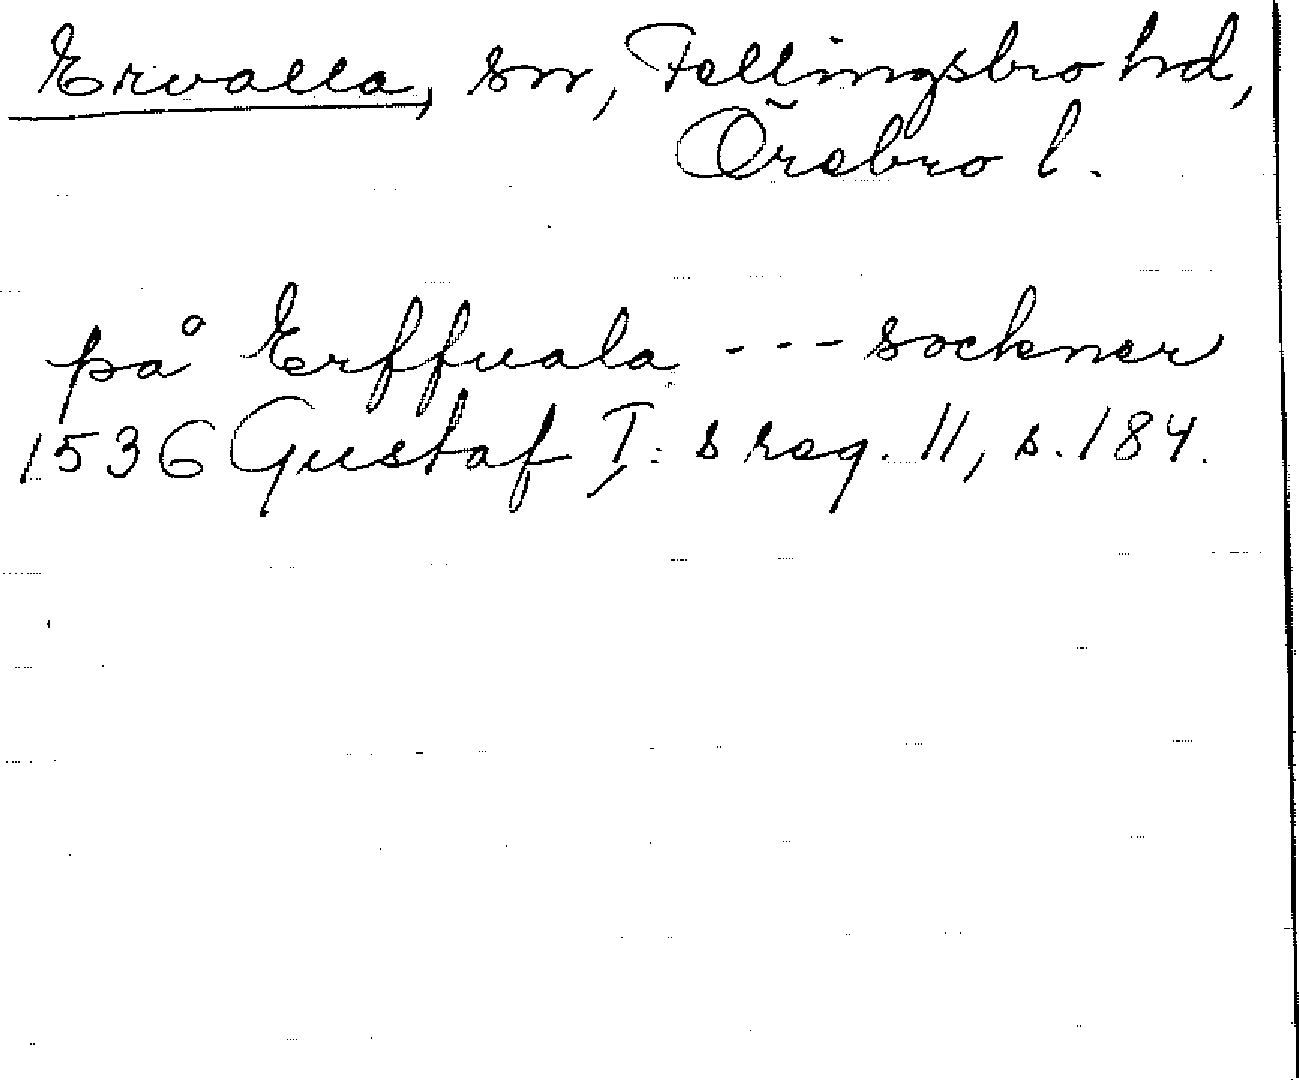 Ervalla, sn, Fellingsbro hd,
Örebro l.
på Erffuala --- sockner
1536 Gustaf I:s reg. 11, s. 184.